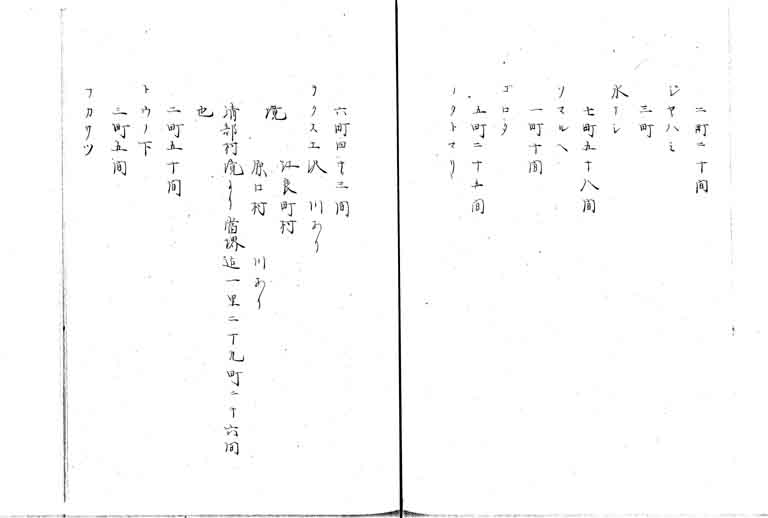 二町二十間
シヤハミ
三町
水ナシ
七町五十八間
ソマルヘ
一町十間
ゴロタ
五町二十五間
ノタトマリ
六町四十三間
ラクスエ沢 川あり
江良町村
境
原口村 川あり
清部村境より当境迄一里二丁九町二十六間
也
二町五十間
トウノ下
三町五間
フカウツ